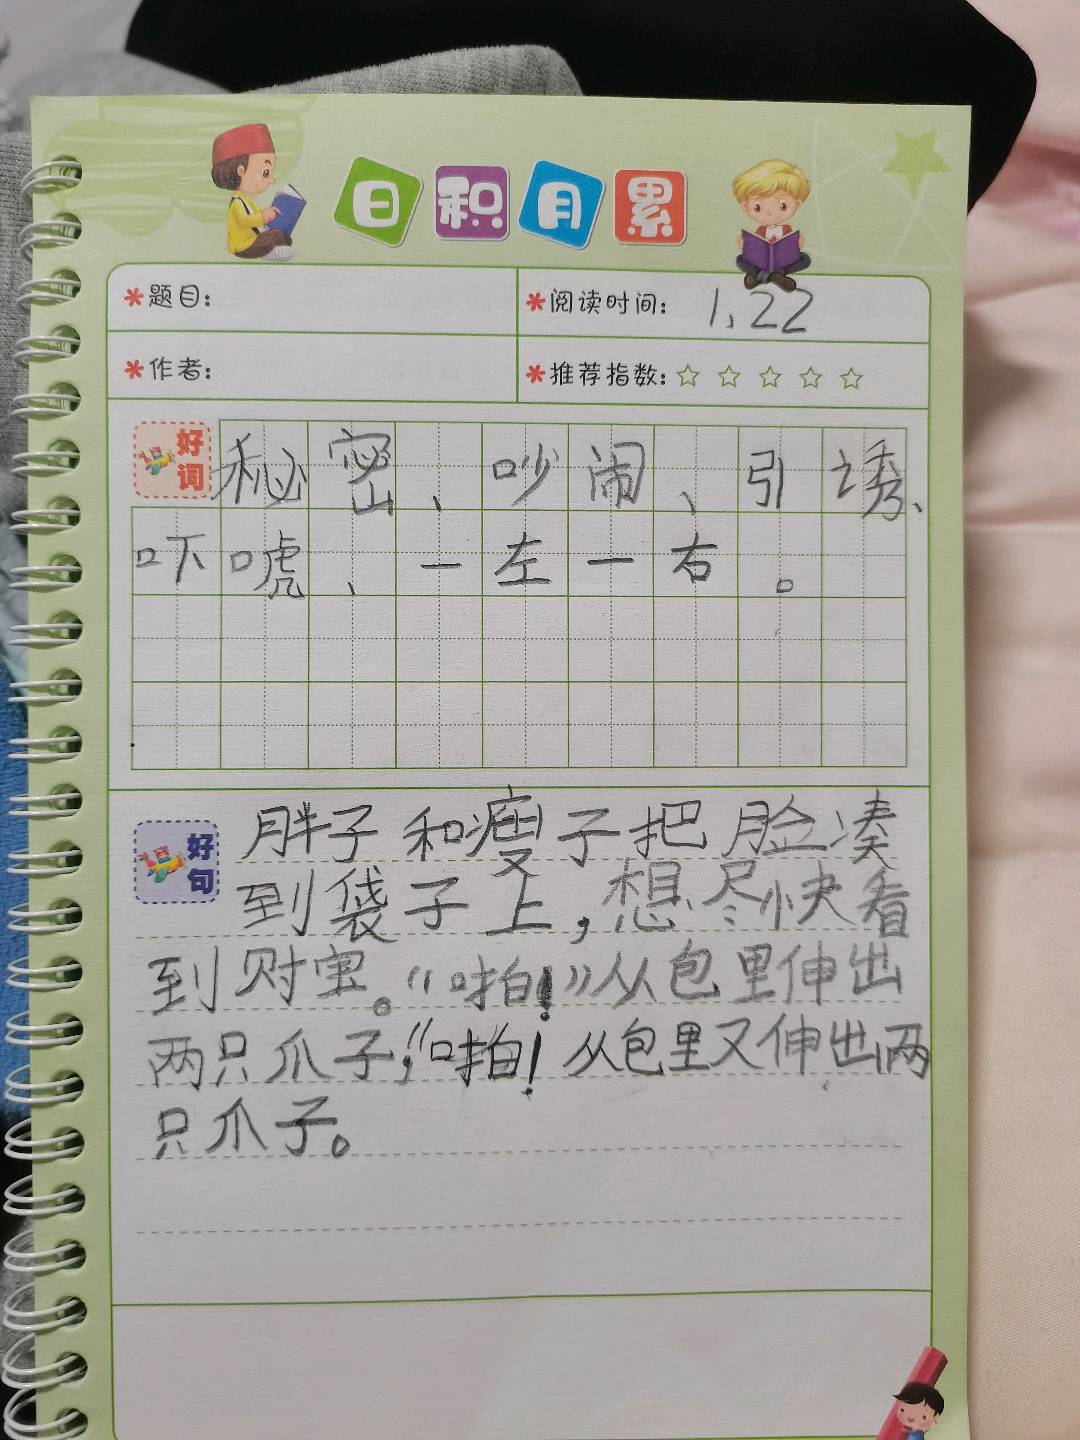 日积月累
*题目:
*阅读时间: 1.22
*作者:
*推荐指数:☆☆☆☆☆
好词
秘密、吵闹、引诱、
吓唬、一左一右。
好句
胖子和瘦子把脸凑
到袋子上,想尽快看
到财宝。“啪!”从包里伸出
两只爪子,“啪!从包里又伸出两
只爪子。